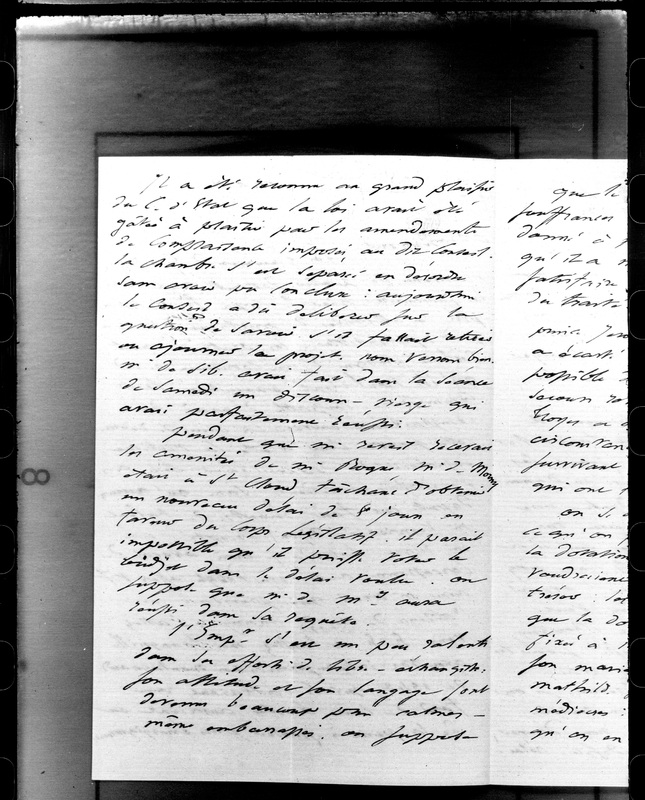 Il a été reconnu au grand plaisir
du C. d'Etat que la loi avait été
gâtée à plaisir par les amendements
de complaisance imposés au dit Conseil.
la chambre s'est séparée en désordre
sans avoir pu conclure : aujourd'hui
le Conseil a dû délibérer sur la
question de savoir s'il fallait retirer
ou ajourner le projet. nous verrons bien.
M. de Sib. avait fait dans la séance
de Samedi un discours - qui
avait parfaitement réussi.
pendant que M. recevait
les de M. M. de Morny
était à St Cloud tâchant d'obtenir
un nouveau délai de 8 jours en
faveur du Corps Législatif : il parait
impossible qu'il puisse voter le
budget dans le délai voulu. on
suppose que M. de My aura
réussi dans sa requête.
l'Empr s'est un peu ralenti
dans ses efforts de libre-échangiste.
son attitude et son langage sont
devenus beaucoup plus calmes -
même embarrassés. on suppose
que le
souffrances
donné à
qu'il a
du traité
a écarté
possible
secours
Troyes a
survivant
qui ont
on
ce qu'on
la dotation
voudraient
trésor : les
que la
fixé à
son mari
mathilde
médiocres :
qu'on en
8